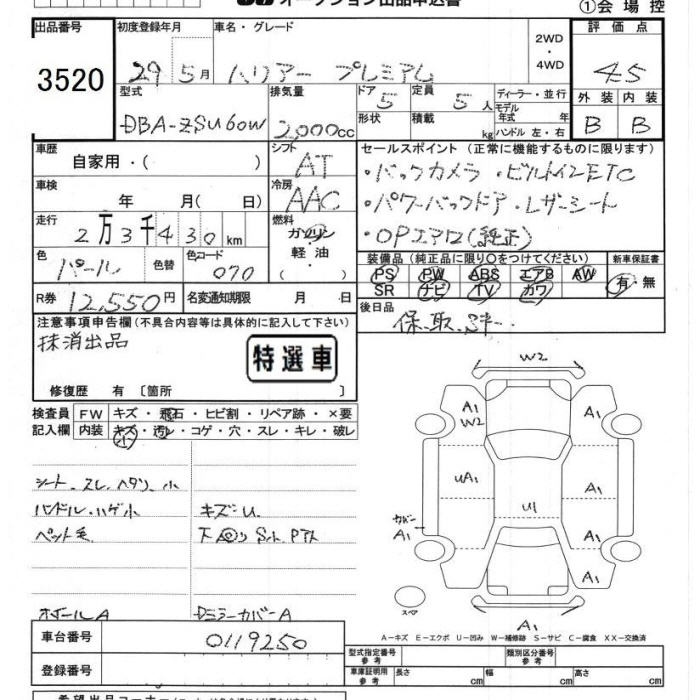 ①会場控
出品番号
3520
初度登録年月
29 5月
車名・グレード
ハリアー プレミアム
2WD
・
4WD
評価点
4.5
型式
DBA-ZSU60W
排気量
2,000cc
ドア
5
定員
5人
ディーラー・並行
モデル年式 年
形状
積載 kg
ハンドル 左・右
外装 内装
B B
車歴
自家用・( )
シフト
AT
セールスポイント (正常に機能するものに限ります)
・バックカメラ・ビルトインETC
・パワーバックドア・レザーシート
・OPエアロ(純正)
車検
年 月( 日)
冷房
AAC
走行
2万3千430km
燃料
ガソリン
軽油
・( )
色
パール
色替
色コード
070
装備品 (純正品に限り○をつけてください)
PS PW ABS エアB AW
SR ナビ TV カワ
新車保証書
有・無
R券 12,550円
名変通知期限 月 日
後日品
保、取、
注意事項申告欄(不具合内容等は具体的に記入して下さい)
抹消出品
特選車
修復歴 有 〔箇所 〕
検査員記入欄
FW キズ・飛石・ヒビ割・リペア跡・×要
内装 キズ・汚レ・コゲ・穴・スレ・キレ・破レ
小
シート、スレ、ヘタリ、小
ハンドル、ハゲ小
キズ・U
ペット毛
ホイールA
DミラーカバーA
W2
A1
W2
A1
UA1
U1
A1
カバー
A1
A1
A1
スペア
A1
A-キズ E-エクボ U-凹み W-補修跡 S-サビ C-腐食 XX-交換済
車台番号
0119250
登録番号
型式指定番号
参考
類別区分番号
参考
車庫証明用
参考
長さ cm
幅 cm
高さ cm